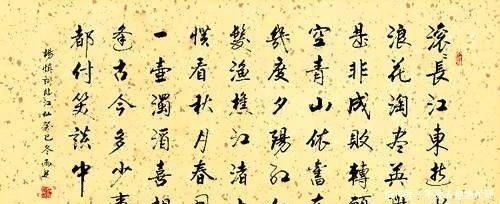 滚長江東逝
浪花淘尽英雄
是非成敗轉頭
空青山依舊在
幾度夕陽紅
髮漁樵江渚上
慣看秋月春風
一壺濁酒喜相
逢古今多少事
都付笑談中
楊慎詞臨江仙癸巳冬雨